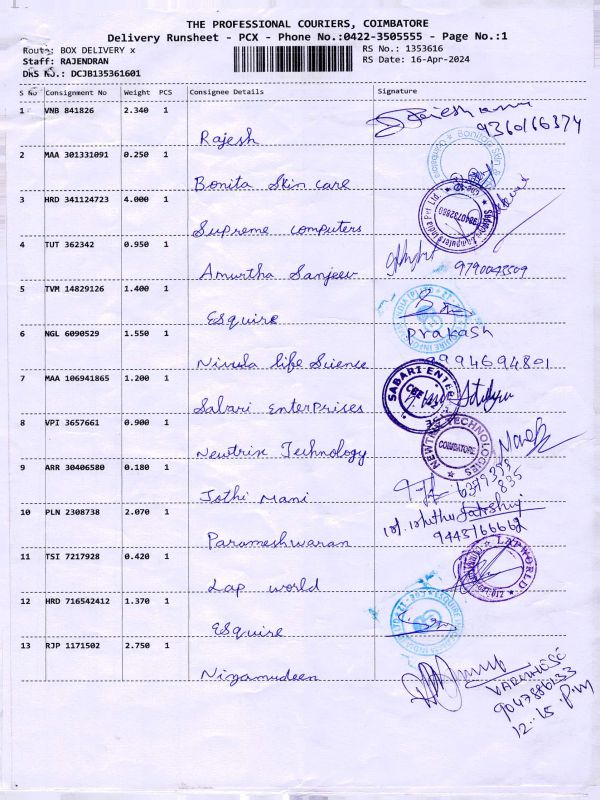 THE PROFESSIONAL COURIERS, COIMBATORE
Delivery Runsheet - PCX - Phone No.:0422-3505555 - Page No.:1
Route: BOX DELIVERY x
RS No.: 1353616
Staff: RAJENDRAN
RS Date: 16-Apr-2024
DRS No.: DCJB135361601
S No Consignment No Weight PCS Consignee Details Signature
1 VNB 841826 2.340 1
Rajesh
9360166374
2 MAA 301331091 0.250 1
Bonita Skin care
3 HRD 341124723 4.000 1
Supreme computers
4 TUT 362342 0.950 1
Amurtha Sanjeev
9790043509
5 TVM 14829126 1.400 1
Esquire
Prakash
6 NGL 6090529 1.550 1
Nivula life Science
9994694801
7 MAA 106941865 1.200 1
SABARI ENTER
CBE
Sabari Enterprises
8 VPI 3657661 0.900 1
NEWTRIX TECHNOLOGIES
COIMBATORE
Newtrix Technology
9 ARR 30406580 0.180 1
Jothi Mani
6379395
835
10 PLN 2308738 2.070 1
Parameshwaran
9443166662
11 TSI 7217928 0.420 1
LAP WORLD
Lap world
12 HRD 716542412 1.370 1
Esquire
13 RJP 1171502 2.750 1
Nizamudeen
9047886133
12.15.P.M